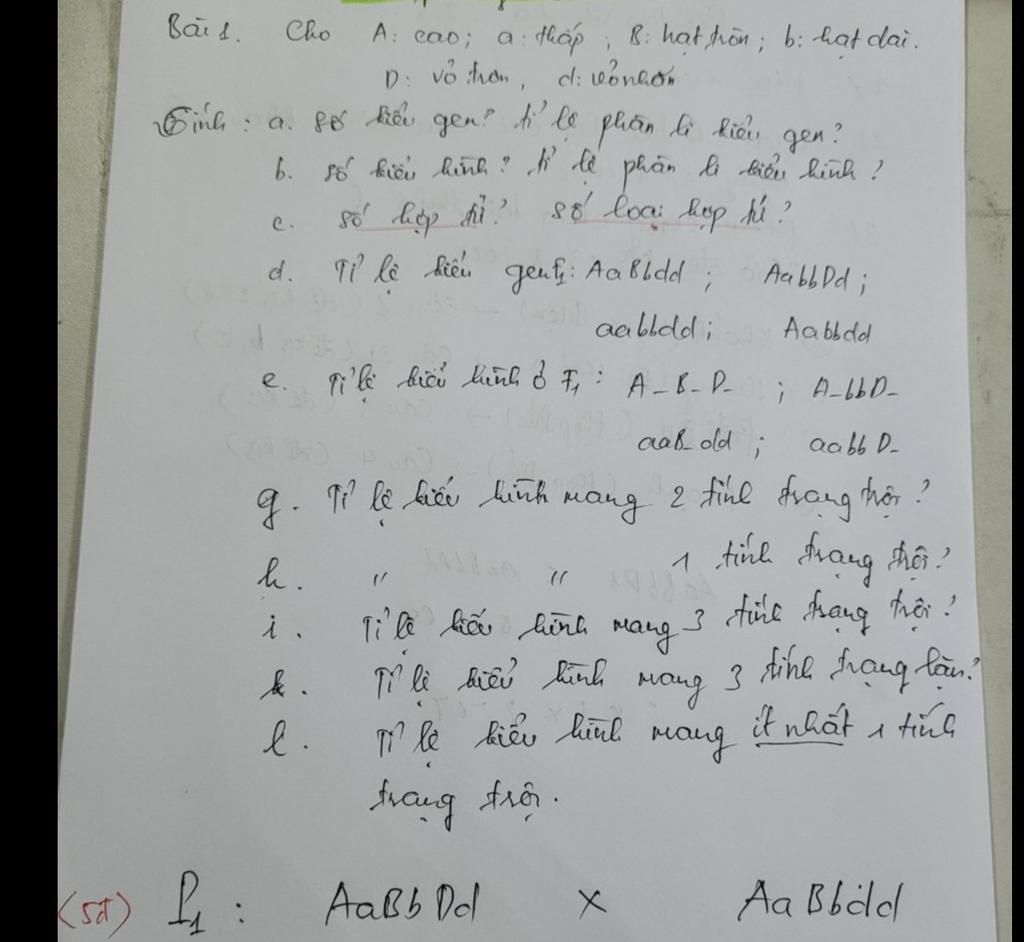 Bài 1. Cho A: cao; a: thấp; B: hạt tròn; b: hạt dài.
D: vỏ trơn, d: vỏ nhăn
Tính: a. Số kiểu gen? tỉ lệ phân li kiểu gen?
b. Số kiểu hình? tỉ lệ phân li kiểu hình?
c. Số hợp tử? Số loại hợp tử?
d. Tỉ lệ kiểu gen F1: AaBbdd; AabbDd;
aabbdd; Aabbdd
e. Tỉ lệ kiểu hình ở F1: A_B_D_; A_bbD_
aaB_dd; aabbD_
g. Tỉ lệ kiểu hình mang 2 tính trạng trội?
h. " " 1 tính trạng trội?
i. Tỉ lệ kiểu hình mang 3 tính trạng trội?
k. Tỉ lệ kiểu hình mang 3 tính trạng lặn?
l. Tỉ lệ kiểu hình mang ít nhất 1 tính
trạng trội.
(5đ) P1: AaBbDd x AaBbdd